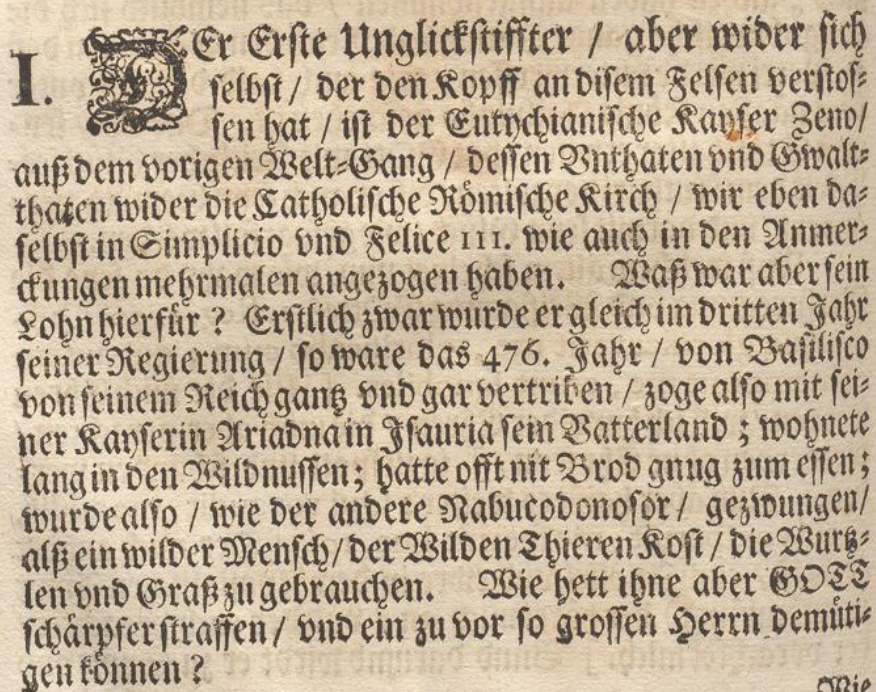 I. DEr Erste Unglickstiffter / aber wider sich
selbst / der den Kopff an disem Felsen verstos⸗
sen hat / ist der Eutychianische Kayser Zeno/
auß dem vorigen Welt⸗Gang / dessen Vnthaten vnd Gwalt⸗
thaten wider die Catholische Römische Kirch / wir eben da⸗
selbst in Simplicio vnd Felice III. wie auch in den Anmer⸗
ckungen mehrmalen angezogen haben. Waß war aber sein
Lohn hierfür ? Erstlich zwar wurde er gleich im dritten Jahr
seiner Regierung / so ware das 476. Jahr / von Basilisco
von seinem Reich gantz vnd gar vertriben / zoge also mit sei⸗
ner Kayserin Ariadna in Isauria sein Vatterland ; wohnete
lang in den Wildnussen; hatte offt nit Brod gnug zum essen;
wurde also / wie der andere Nabucodonosor / gezwungen/
alß ein wilder Mensch/ der Wilden Thieren Kost / die Wurtz⸗
len vnd Graß zu gebrauchen. Wie hett ihne aber GOTT
schärpfer straffen / vnd ein zu vor so grossen Herrn demüti⸗
gen können ?
Wie